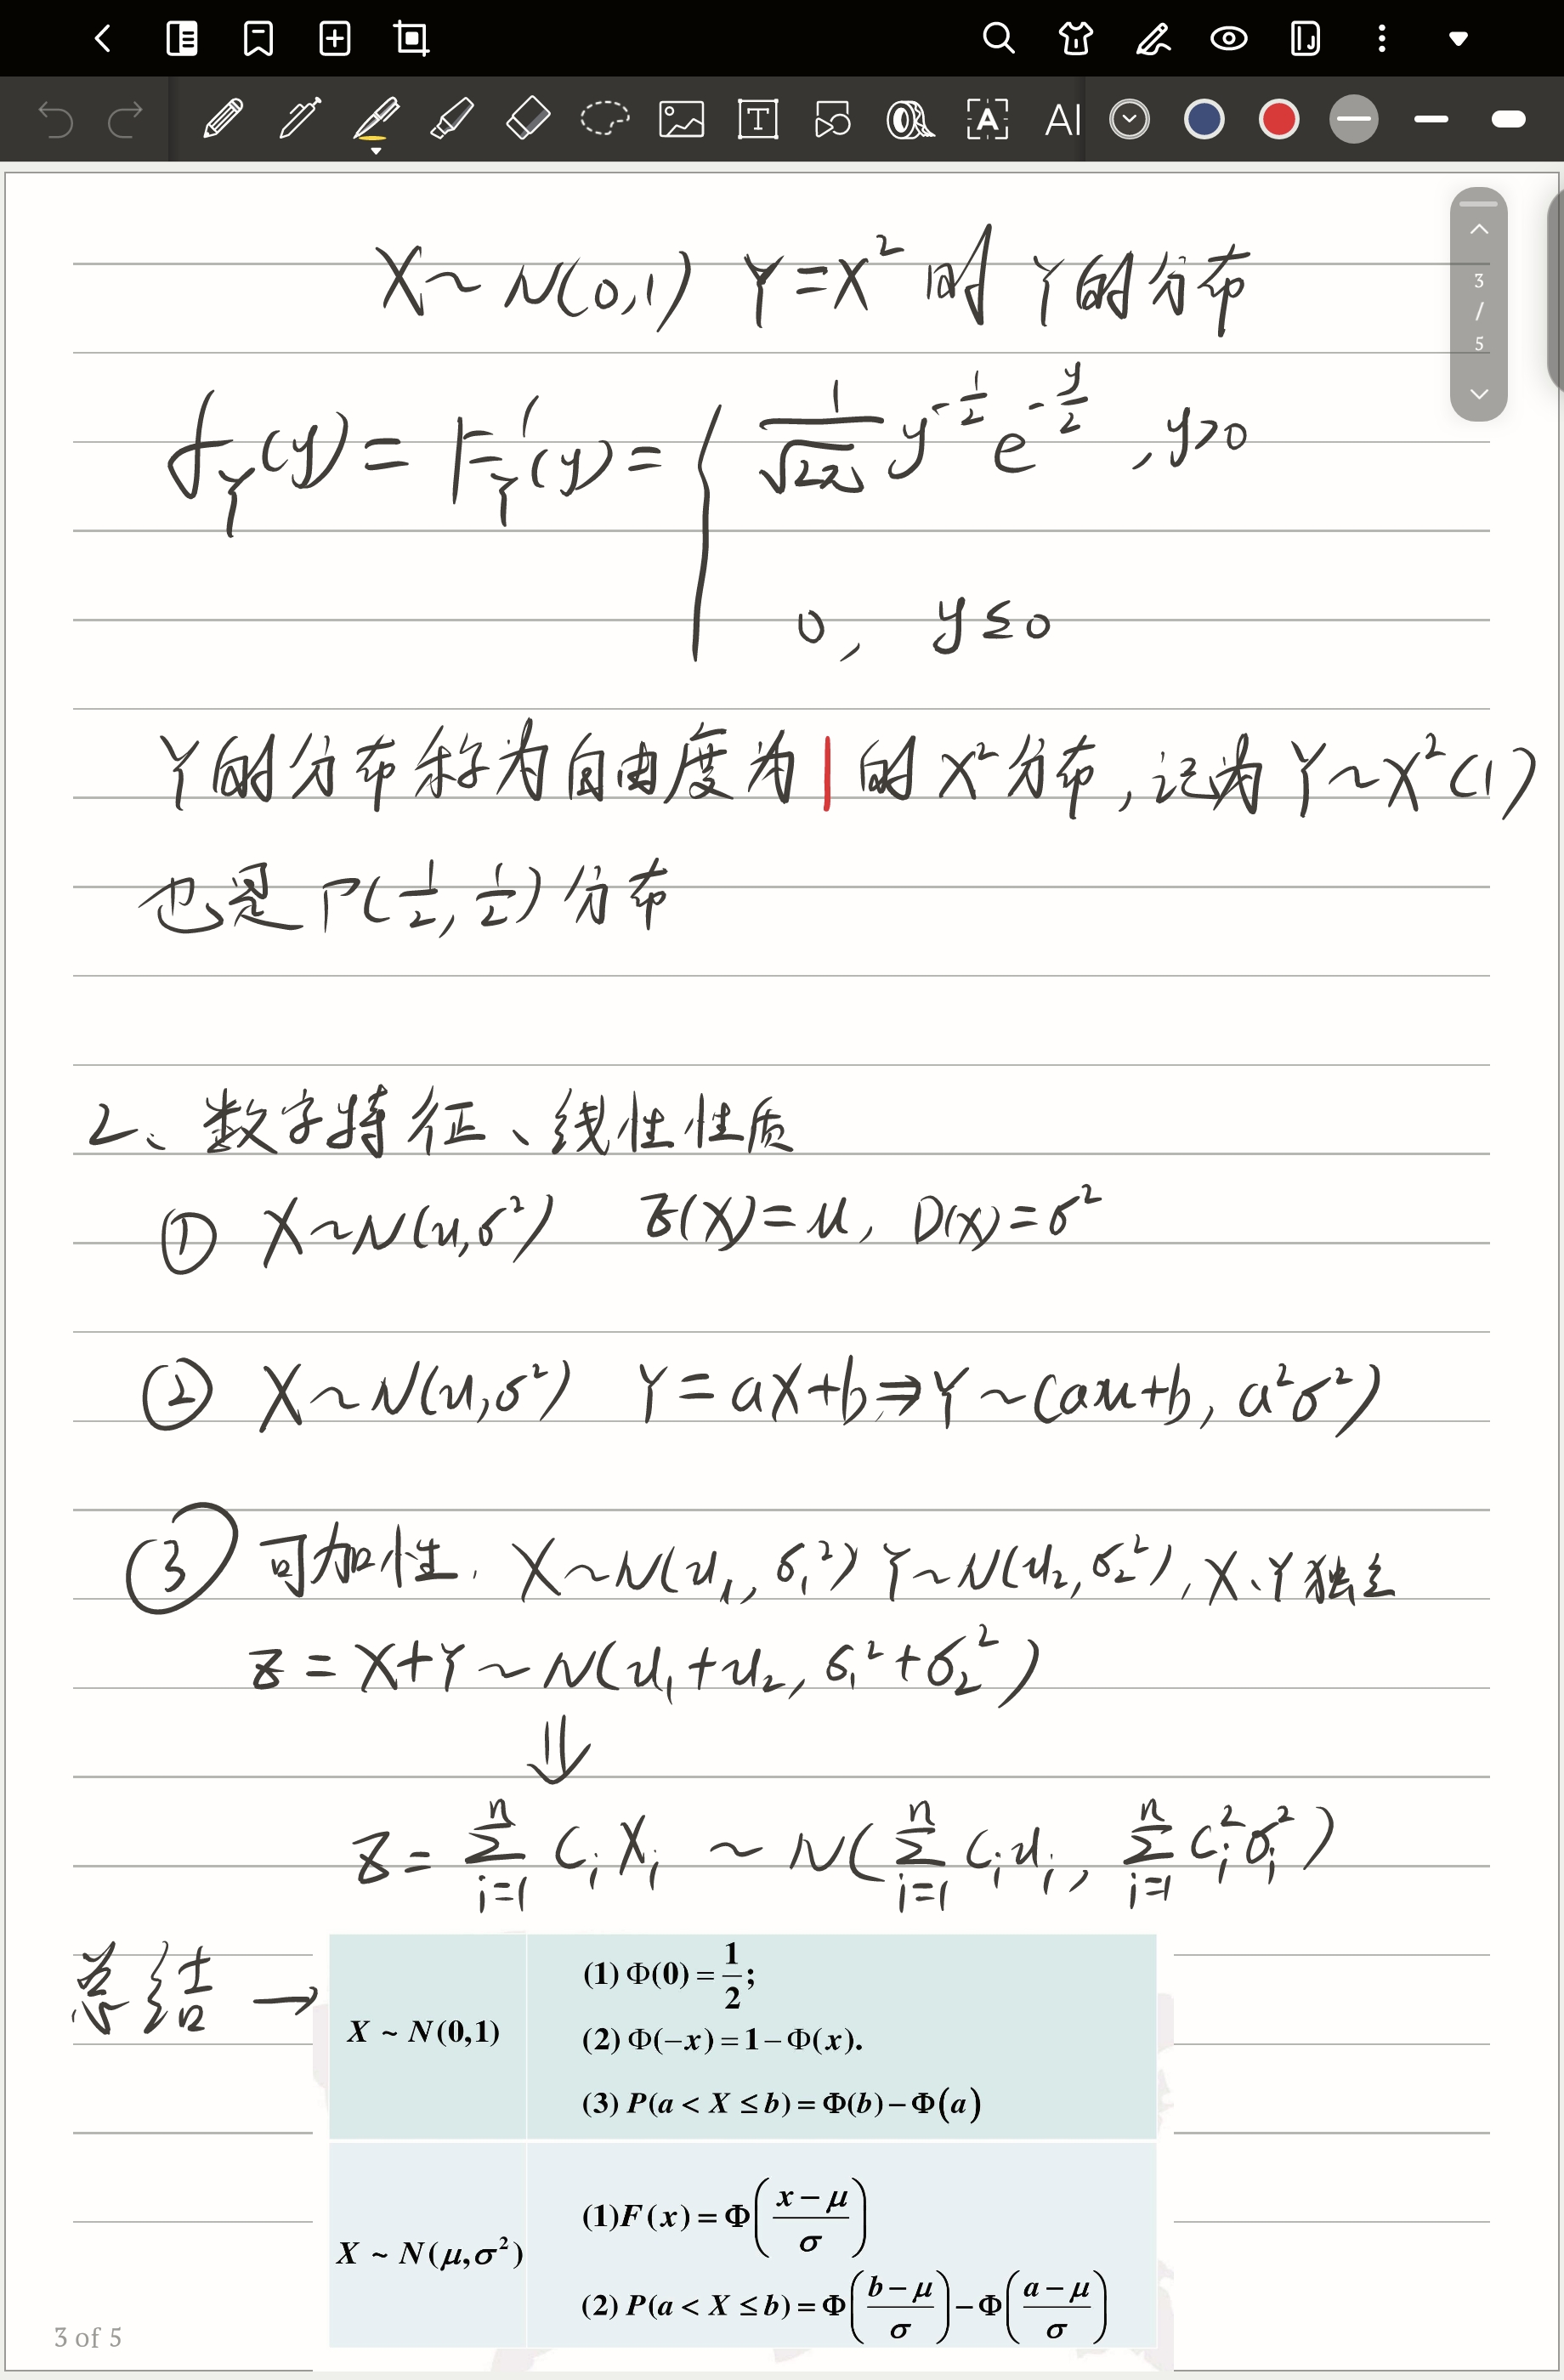 AI
3
/
5
X~N(0,1) Y=X² 时 Y的分布
f_Y(y) = F_Y'(y) = { 1/√(2π) y^(-1/2) e^(-y/2) , y>0
0, y≤0
Y的分布称为自由度为1的X²分布,记为Y~X²(1)
也是Γ(1/2, 1/2)分布
2、数字特征、线性性质
① X~N(u,σ²) E(X)=u, D(X)=σ²
② X~N(u,σ²) Y=aX+b⇒Y~(au+b, a²σ²)
③ 可加性. X~N(u₁, σ₁²) Y~N(u₂,σ₂²), X、Y独立
Z = X+Y~N(u₁+u₂, σ₁²+σ₂²)
⇓
Z = Σ_{i=1}^{n} C_i X_i ~ N(Σ_{i=1}^{n} C_i u_i, Σ_{i=1}^{n} C_i² σ_i²)
总结 →
X ~ N(0,1)
(1) Φ(0) = 1/2;
(2) Φ(−x) = 1 − Φ(x).
(3) P(a < X ≤ b) = Φ(b) − Φ(a)
X ~ N(μ,σ²)
(1)F(x) = Φ((x − μ)/σ)
(2) P(a < X ≤ b) = Φ((b − μ)/σ) − Φ((a − μ)/σ)
3 of 5